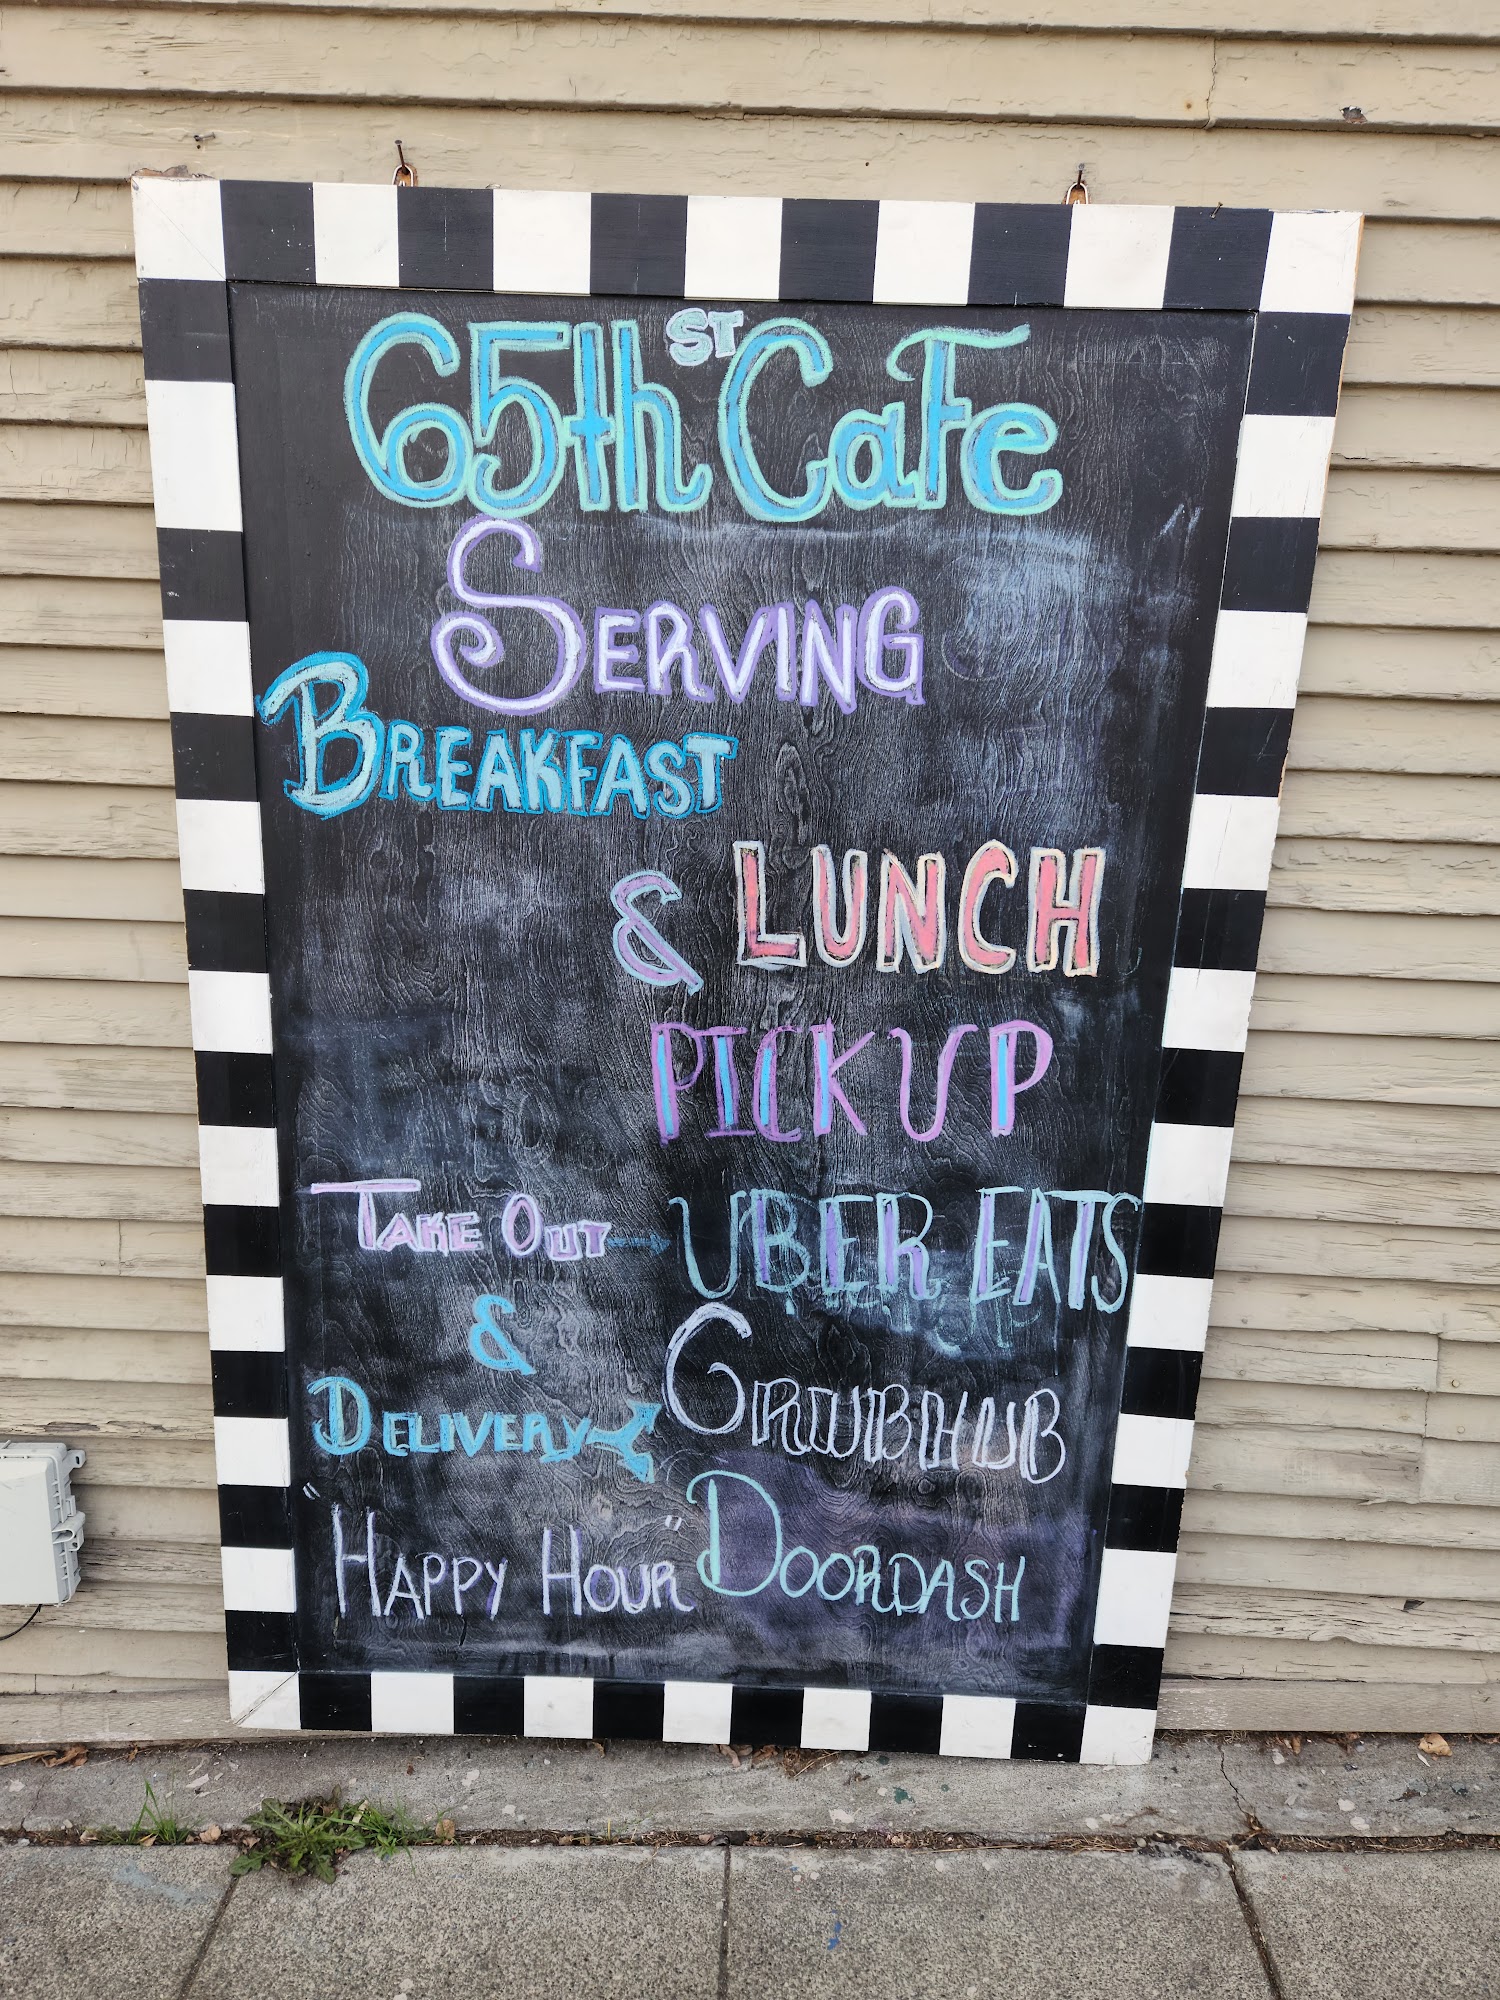 65th ST Cafe
SERVING
BREAKFAST
& LUNCH
PICK UP
TAKE OUT → UBER EATS
&
DELIVERY GRUBHUB
"HAPPY HOUR" DOORDASH